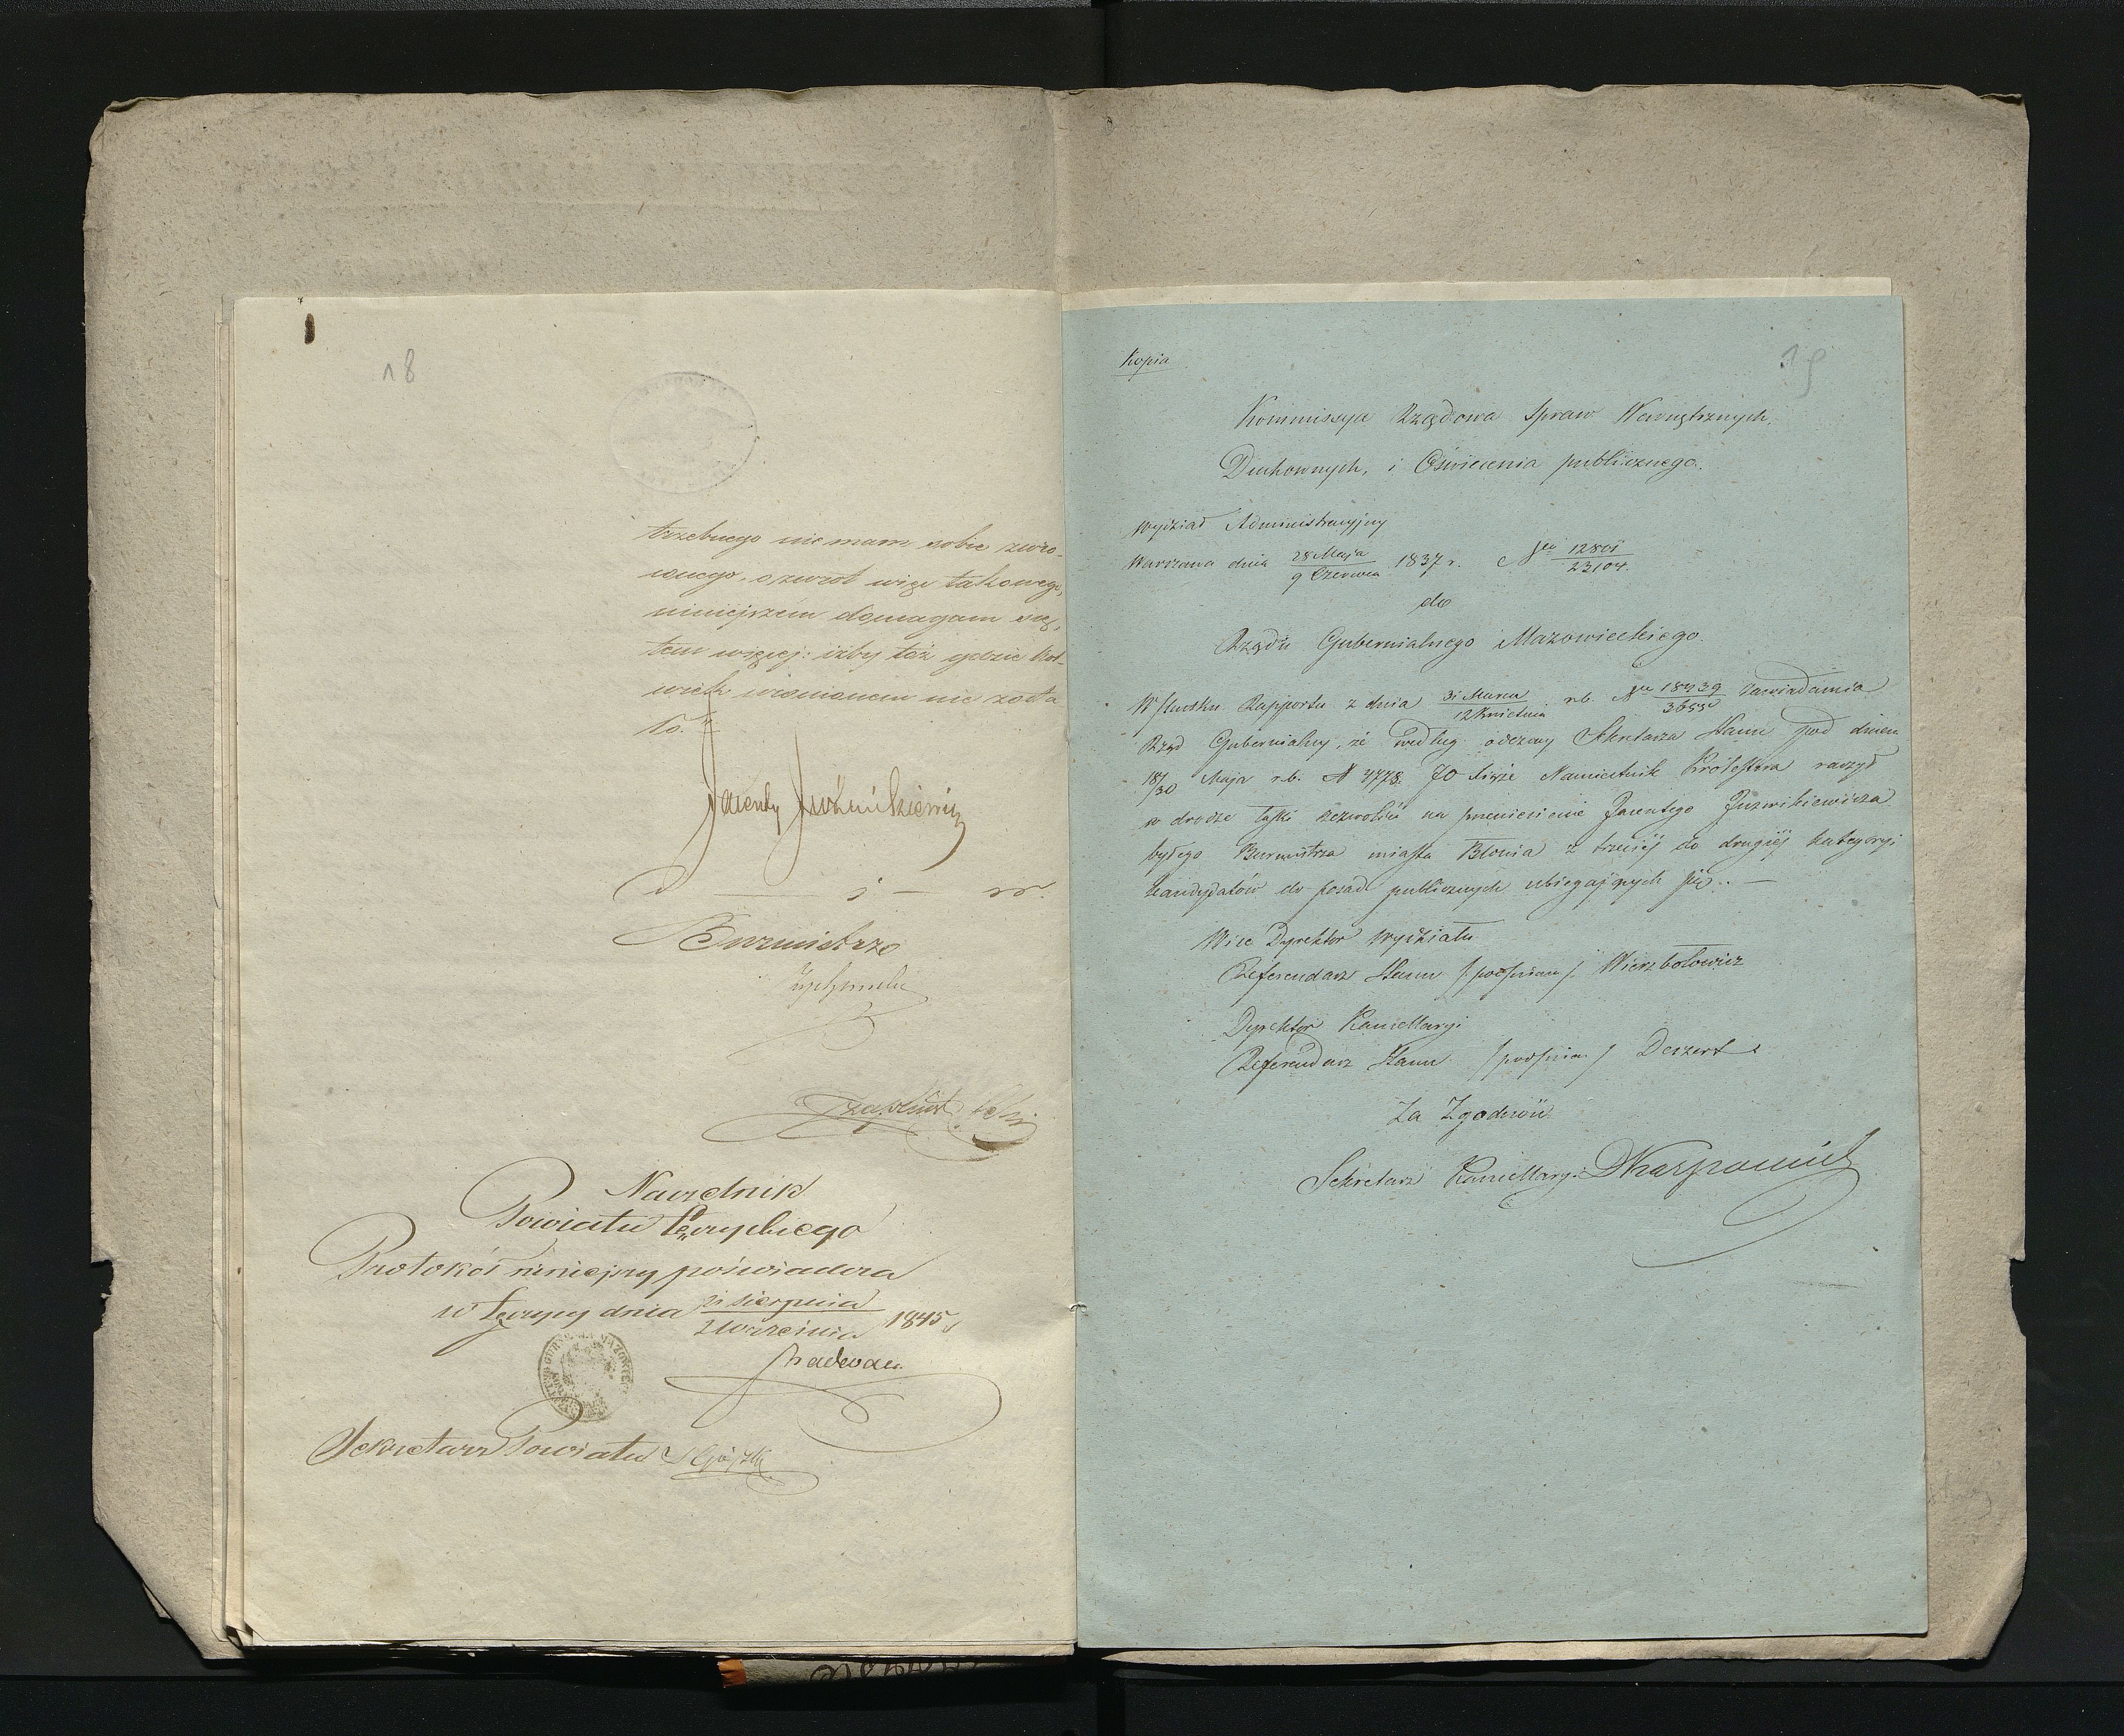 18
trzebnego nie mam sobie zwró-
conego, o zwrot więc takowego,
niniejszem domagam się,
tem więcej: iżby też gdzie kol-
wiek wronionem nie zosta
ło.
Jacenty Jóźwikiewicz
d — j — w.
Burmistrz
Naczelnik
Powiatu Łęczyckiego
Protokół niniejszy poświadcza
w Łęczycy dnia 21 Sierpnia / 2 Września 1845 r.
Sekretarz Powiatu
19
Kopia
Kommissya Rządowa Spraw Wewnętrznych,
Duchownych, i Oświecenia publicznego.
Wydział Administracyjny
Warszawa dnia 28 Maja / 9 Czerwca 1837 r. Nr 12801 / 23104.
do
Rządu Gubernialnego Mazowieckiego.
W skutku Rapportu z dnia 31 Marca / 12 Kwietnia r.b. Nr 18439 / 3655 zawiadamia
Rząd Gubernialny, że według odezwy Sekretarza Stanu pod dniem
18/30 Maja r.b. N 4778. JO Xiąże Namiestnik Królestwa raczył
w drodze łaski zezwolić na przeniesienie Jacentego Juzwikiewicza
byłego Burmistrza miasta Błonia z trzeciéj do drugiéj kategoryi
kandydatów do posad publicznych ubiegających się. —
Vice Dyrektor Wydziału
Referendarz Stanu /podpisan/ Wierzbołowicz
Dyrektor Kancellaryi
Referendarz Stanu /podpisan/ Deszert
Za Zgodność
Sekretarz Kancellaryi